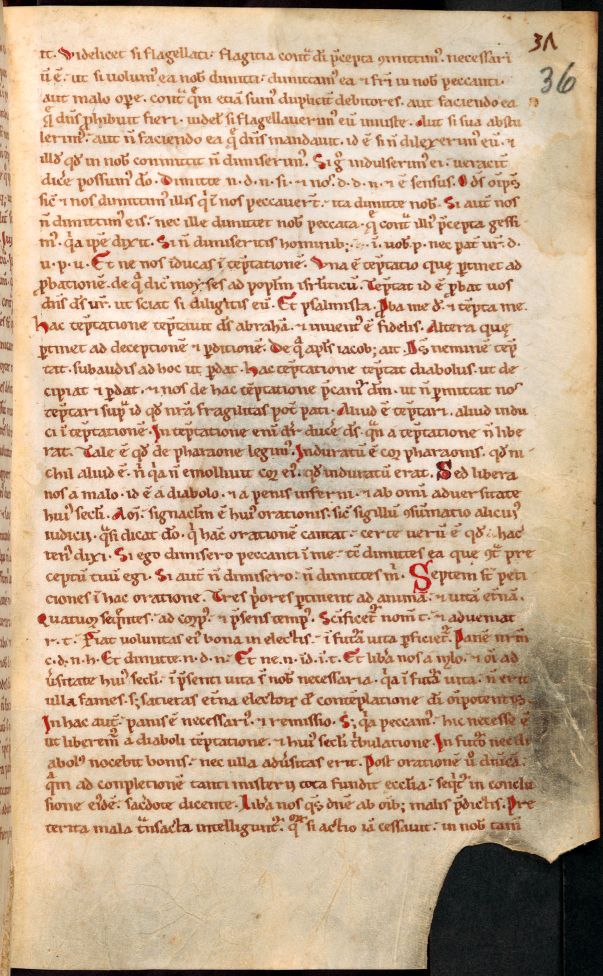 31
36
it. Videlicet si flagellati. flagitia cont͛ di p̄cepta ɔmittim᷒. necessari
ū ē. ut si volum᷒ ea nob dimitti. dimittam᷒ ea &amp; fr̄i in nob peccanti.
aut malo op̄e. cont͛ q̄m etiā sum᷒ dupliciť debitores. aut faciendo ea
q̨ dn̄s ꝓhibuit fieri. videl; si flagellauerim᷒ eū iniuste. Aut si sua abstu
lerim᷒. aut n̄ faciendo ea q̨ dn̄s mandauit. id ē si n̄ dilexerim᷒ eū. &amp;
illd qd in nob committit n̄ dimiserim᷒. Si g indulserim᷒ ei. veracit͛
dicere possum᷒ do. Dimitte n. d. n. si. &amp; nos d. d. n. &amp; ē sensus. Ds om̄ps
sic &amp; nos dimittim᷒ illis qi ī nos peccauert. ita dimitte nob. Si aut nos
n̄ dimittim᷒ eis. nec ille dimittet nob peccata. q̨ cont͛ illi᷒ p̄cepta gessi
m᷒. qa ipse dixit. Si n̄ dimiseritis hominib; i. uob. p. nec pat vr̄. d.
u. p. u. Et ne nos īducas ī tēptationē. Una ē temptatio que ꝑtinet ad
ꝓbationē. de q dic moyses ad poplm isrl̄iticū. Tēptat id ē ꝓbat uos
dn̄s ds vr̄. ut sciat si diligitis eū. Et psalmista. ꝓba me d. &amp; tēpta me.
Hac tēptatione tēptauit ds abrahā. &amp; inuent᷒ ē fidelis. Altera que
ꝑtinet ad deceptionē &amp; ꝑditionē. De q apls iacob; ait. Ds neminē tēp
tat. subaudis ad hoc ut ꝑdat. Hac tēptatione tēptat diabolus. ut de
cipiat &amp; ꝑdat. &amp; nos de hac tēptatione p̄cam᷒ dm̄. ut n̄ ꝑmittat nos
tēptari sup id qd nr̄a fragilitas pot pati. Aliud ē temptari. aliud indu
ci ī tēptationē. In tēptatione eni ds͛ ducere ds. q̄m a tēptatione n̄ libe
rat. Tale ē qd de pharaone legim᷒. Induratū ē cor pharaonis. qd ni
chil aliud ē. n̄ qa n̄ emolliuit cor ei᷒. qd induratū erat. Sed libera
nos a malo. id ē a diabolo. &amp; a penis inferni. &amp; ab omi aduersitate
hui᷒ secli. Am̄. signaclm ē hui᷒ orationis. sic sigillū ɔsūmatio alicui᷒
iudicii. q̄si dicat do. q hāc orationē cantat. certe uerū ē qd hac
ten᷒ dixi. Si ego dimisero peccanti ī me. tē dimittes ea que ɔt͛ pre
ceptū tuū egi. Si aut n̄ dimisero. n̄ dimittes m. Septem st peti
ciones ī hac oratione. Tres p̄ores ꝑtinent ad animā. &amp; uitā et̄nā.
Quatuor seqntes. ad corp᷒. &amp; p̄sens temp᷒. Scificet nom̄ t. &amp; adueniat
r. t. Fiat voluntas ei᷒ bona in electis. ī futa vita ꝑficiet. Panē nr̄m
c. d. n. h. Et dimitte. n. d. n. Et ne. n. id. i. t. Et liba nos a malo. &amp; oi ad
uersitate hui᷒ secli. ī p̄senti uita ī nob necessaria. qa ī futa uita. n̄ erit
ulla fames. s; satietas et̄na electoꝝ de ɔtēplatione di om̄ipotentis.
In hac aut panis ē necessari᷒. &amp; remissio. S; qa peccam᷒. hic necesse ē
ut liberem a diaboli tēptatione. &amp; hui᷒ secli tribulatione. In futo nec di
abol᷒ nocebit bonis. nec ulla aduersitas erit. Post orationē u dn̄icā.
q̄m ad conpletionē tanti misterii tota fundit ecclia. seqr in conclu
sione eidē. sacdote dicente. Liba nos qs dn̄e ab oib; malis p̄dictis. Pre
terita mala transacta intelligunt. q si actio iā cessauit. in nob tam̄